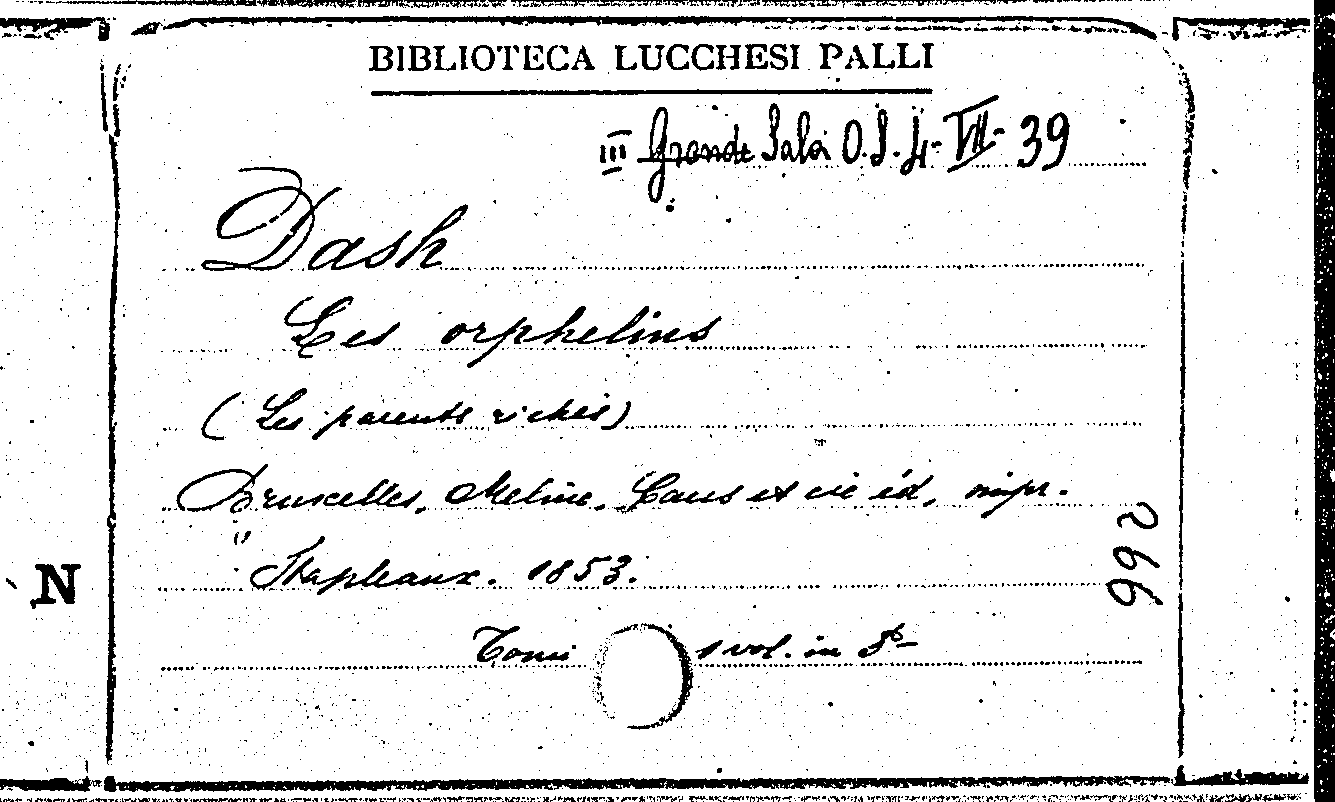 BIBLIOTECA LUCCHESI PALLI
III Grande Sala O.S.4-VII-39
Dash
Les orphelins
(Les parents riches)
Bruxelles, Meline, Cans et cie éd, impr.
Stapleaux. 1853.
Tomi 1 vol. in 8°-
266
N